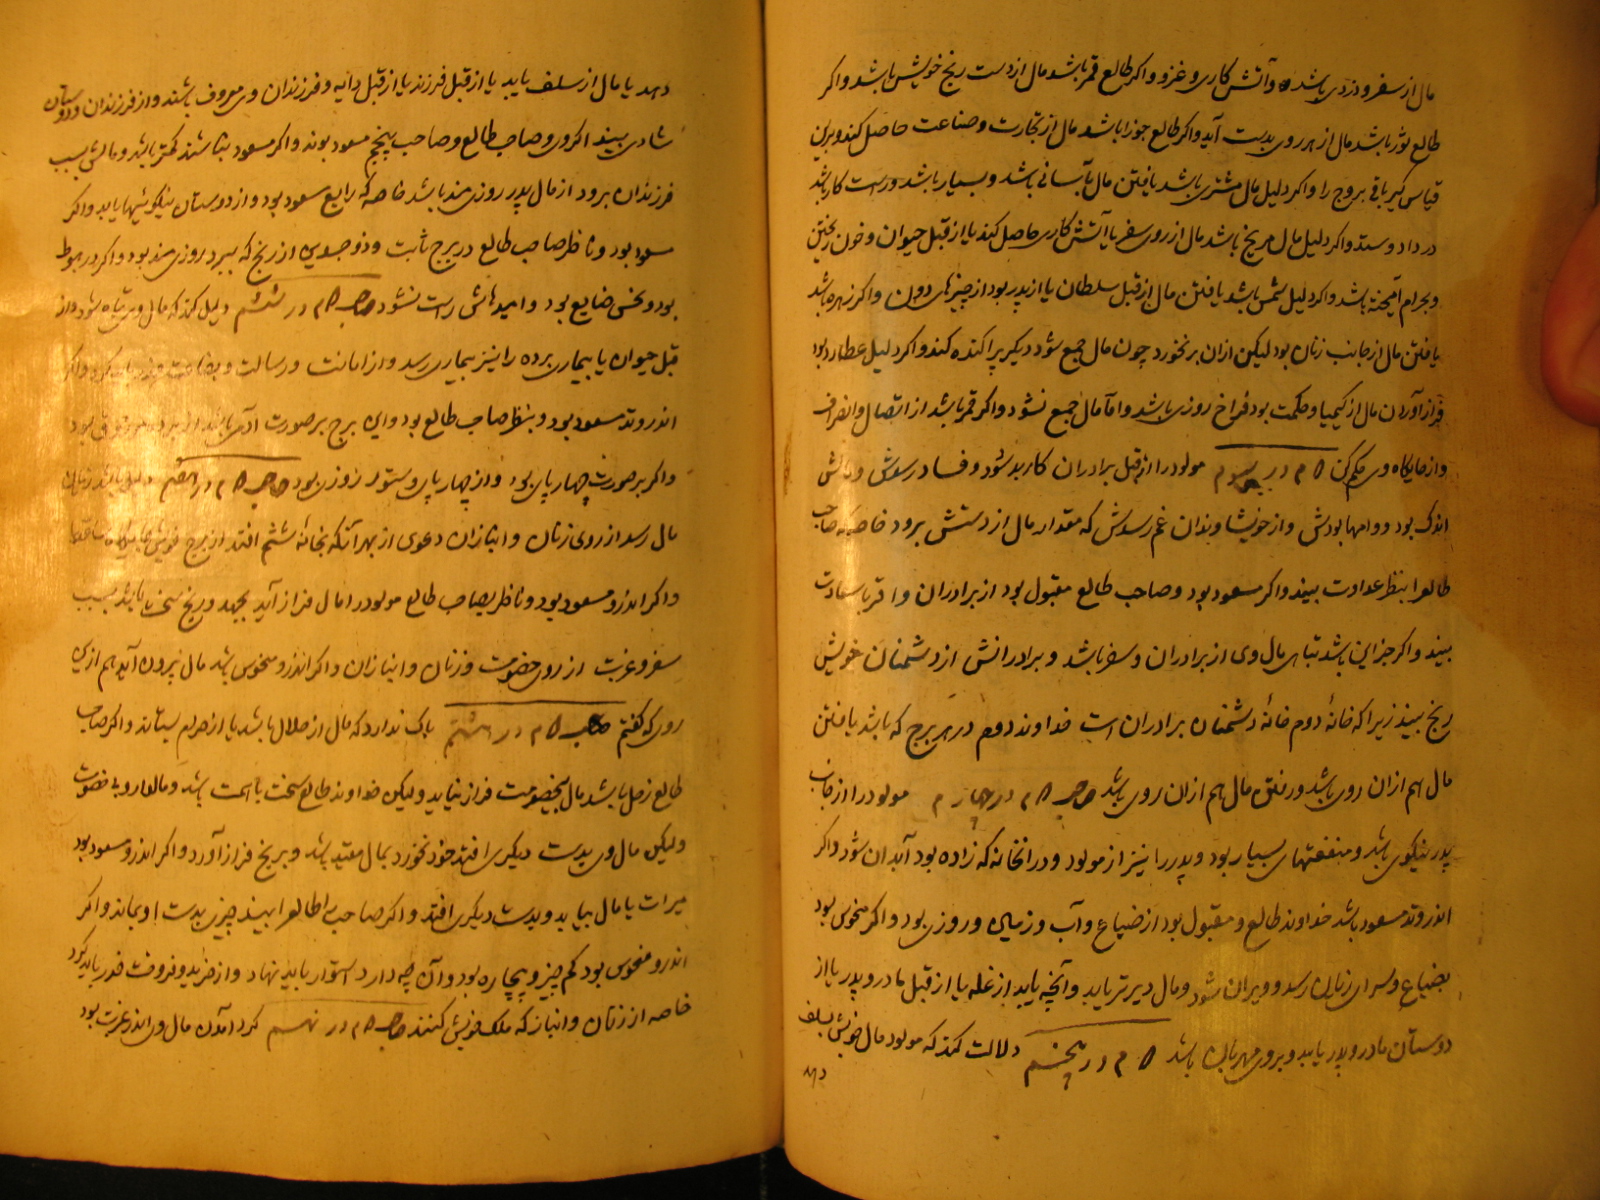 مال از سفر و دزدی باشد و آتش کاری و غزو و اکر طالع قمر باشد مال از دست رنج خویش باشد و اکر
طالع ثور باشد مال از هر روی بدست آید و اکر طالع جوزا باشد مال از تجارت و صناعت حاصل کند و برین
قیاس کیر باقی بروج را و اکر دلیل مال مشتری باشد یافتن مال بآسانی باشد و بسیار باشد و راست کار باشد
در داد و ستد و اکر دلیل مال مریخ باشد مال از روی سفر یا آتش کاری حاصل کند یا از قبل حیوان و خون ریختن
و بحرام آمیخته باشد و اکر دلیل شمس باشد یافتن مال از قبل سلطان یا از پدر بود از چیزهای دون و اکر زهره باشد
یافتن مال از جانب زنان بود لیکن ازان برنخورد چون مال جمع شود دیکر پراکنده کند و اکر دلیل عطارد بود
فراز آوردن مال از کیمیا و حکمت بود فراخ روزی باشد و اما مال جمع نشود و اکر قمر باشد از اتصال و انصراف
و از جایکاه وی حکم کن در سوم مولود را از قبل برادران کار بد شود و فساد رسدش و مالش
اندک بود و وامها بودش و از خویشاوندان غم رسدش که مقدار مال از دستش برود خاصه که صاحب
طالع را بنظر عداوت بیند و اکر مسعود بود و صاحب طالع مقبول بود از برادران و اقربا سعادت
بیند و اکر جز این باشد تباهی مال وی از برادران و سفر باشد و برادرانش از دشمنان خویش
رنج بیند زیرا که خانهٔ دوم خانهٔ دشمنان برادران است خداوند دوم در هر برج که باشد یافتن
مال هم ازان روی باشد و رفتن مال هم ازان روی باشد صاحب در چهارم مولود را از جانب
پدر نیکوی باشد و منفعتهای بسیار بود و پدر را نیز از مولود و در انخانه که زاده بود آبدان شود و اکر
اندرو تد مسعود باشد خداوند طالع و مقبول بود از ضیاع و آب و زمین و روزی بود و اکر منحوس بود
بضیاع و سرای زیان رسد و ویران شود و مال دیرتر یابد و آنچه یابد از غله یا از قبل مادر و پدر یا از
دوستان مادر و پدر یابد و بروی مهربان باشد در پنجم دلالت کند که مولود مال خویش بسلف
دهد
دهد یا مال از سلف یابد یا از قبل فرزند یا از قبل دایه و فرزندان وی معروف باشند و از فرزندان و دوستان
شادی بیند اکر وی و صاحب طالع و صاحب پنجم مسعود بوند و اکر مسعود نباشند کمتر باشد و مالش بسبب
فرزندان برود از مال پدر روزی مند باشد خاصه که رابع مسعود بود و از دوستان نیکوئیها یابد و اکر
مسعود بود و ناظر صاحب طالع در برج ثابت و ذوجسدین از رنج که ببرد روزی مند بود و اکر در هبوط
بود و نحس ضایع بود و امیدهاش راست نشود صاحب در ششم دلیل کند که مال وی تباه شود از
قبل حیوان یا بیماری برده را نیز بیماری رسد و از امانت و رسالت و
اندرو تد مسعود بود و بنظر صاحب طالع بود و این برج بر صورت آدمی باشد
و اکر بر صورت چهارپای بود و از چهارپای و ستور روزی بود صاحب در هفتم دلیل باشد زیان
مال رسد از روی زنان و انبازان دعوی از بهر آنکه بخانهٔ ششم افتد از برج خویش
و اکر اندرو مسعود بود و ناظر بصاحب طالع مولود را مال فراز آید بجهد و رنج سخت باشد بسبب
سفر و غربت از روی خصومت و زنان و انبازان و اکر اندرو منحوس باشد مال بیرون آید هم ازین
روی که کفتم صاحب در هشتم باک ندارد که مال از حلال باشد یا از حرام بستاند و اکر صاحب
طالع زحل باشد مال بخصومت فراز نیاید ولیکن خداوند طالع سخت باشد
ولیکن مال وی بدست دیکری افتد خود نخورد بمال مقید باشد و برنج فراز آورد و اکر اندرو مسعود بود
میراث یا مال بیابد و بدست دیکری افتد و اکر صاحب طالع را بیند چیزی بدست او بماند و اکر
اندرو منحوس بود کم چیز و بیچاره بود و آن چه دارد استوار باید نهاد و از خرید و فروخت حذر باید کرد
خاصه از زنان و انباز که ملک خویش کنند صاحب در نهم کرد آمدن مال وی اندر غربت بود